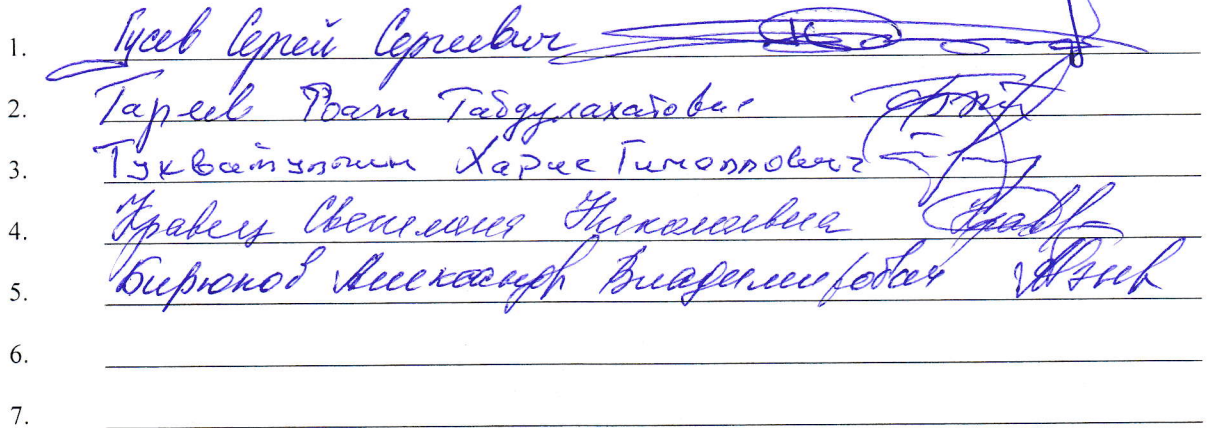 1. Гусев Сергей Сергеевич
2. Гареев Габдулахатович
3. Харис
4. Кравец Светлана Николаевна
5. Бирюков Александр Владимирович
6.
7.